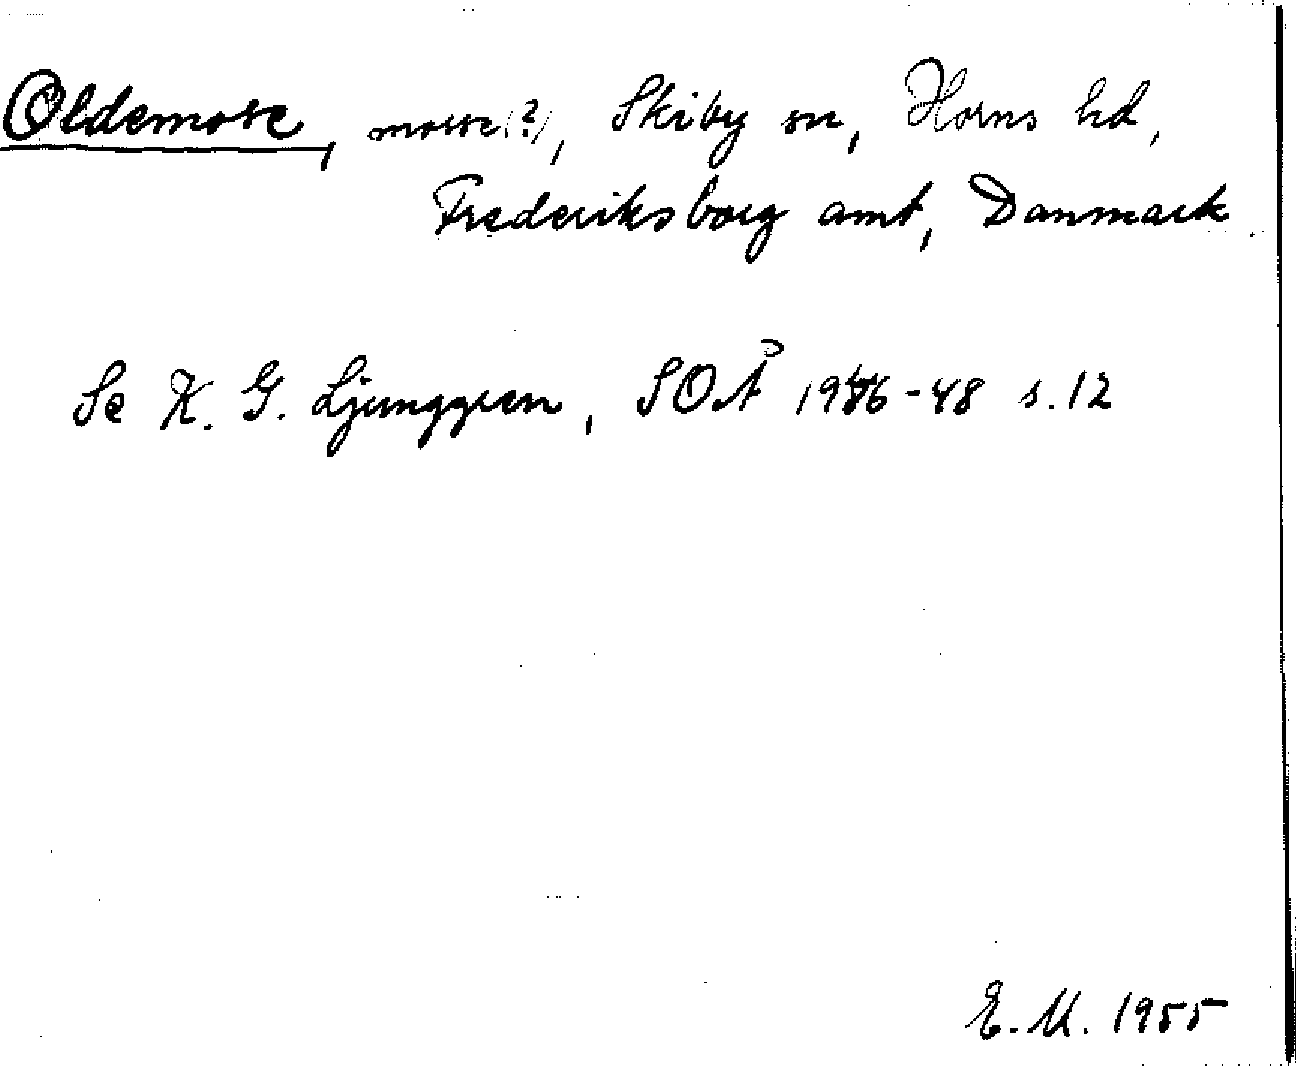 Oldemose, mosse(?), Skiby sn, Horns hd,
Frederiksborg amt, Danmark.
Se K. G. Ljunggren, SOÅ 1946-48 s. 12
E. M. 1955